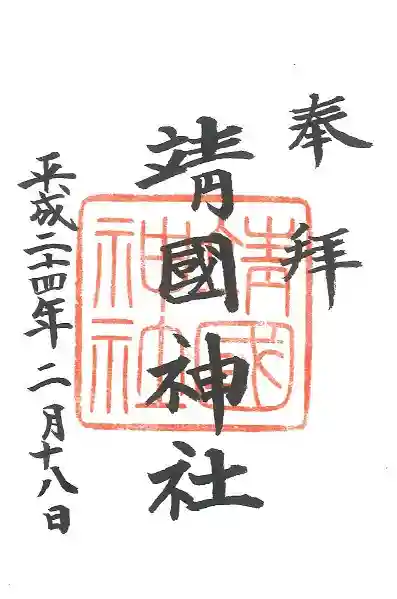 奉拝
靖國神社
靖國神社
平成二十四年二月十八日